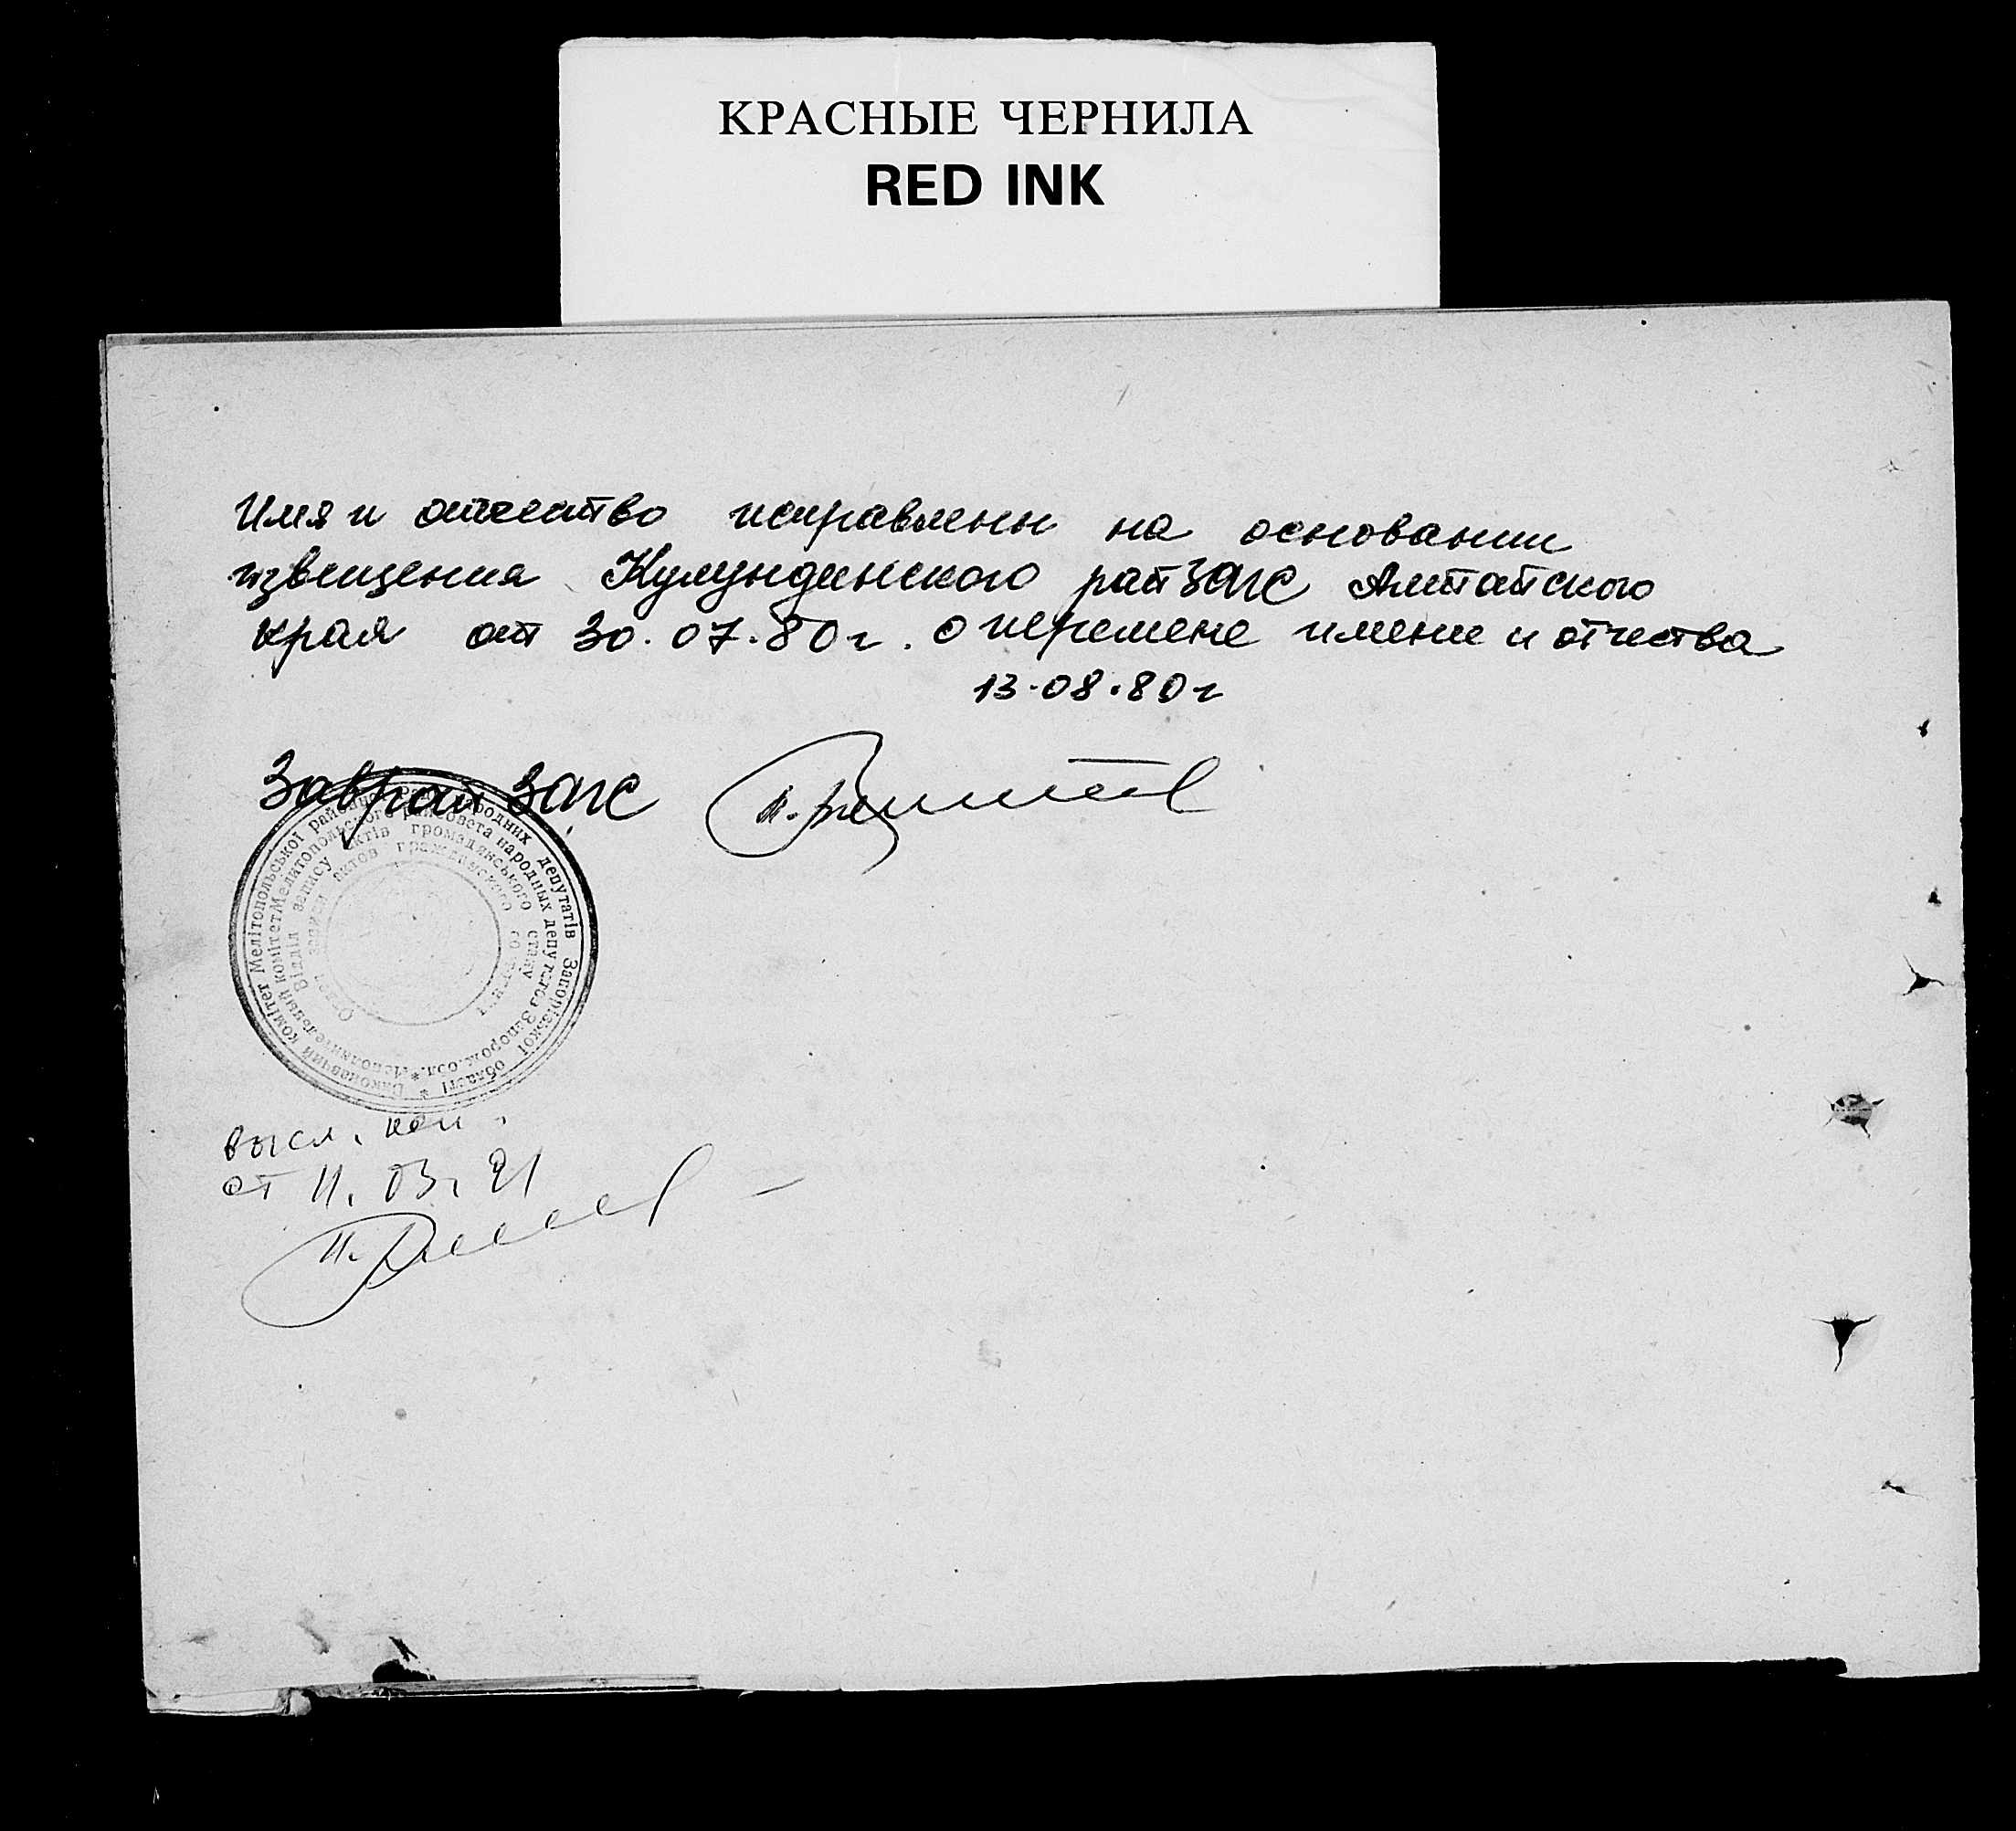 КРАСНЫЕ ЧЕРНИЛА
RED INK
Имя и отчество исправлены на основании
извещения Кулундинского райЗАГС Алтайского
края от 30.07.80г. о перемене имени и отчества
13.08.80г
Заврай ЗАГС
Виконавчий комітет Мелітопольської районної Ради народних депутатів Запорізької області *
Исполнительный комитет Мелитопольского райсовета народных депутатов Запорож. обл. *
Відділ запису актів громадянського стану
Отдел записи актов гражданского состояния
высл.
от 11.03.91